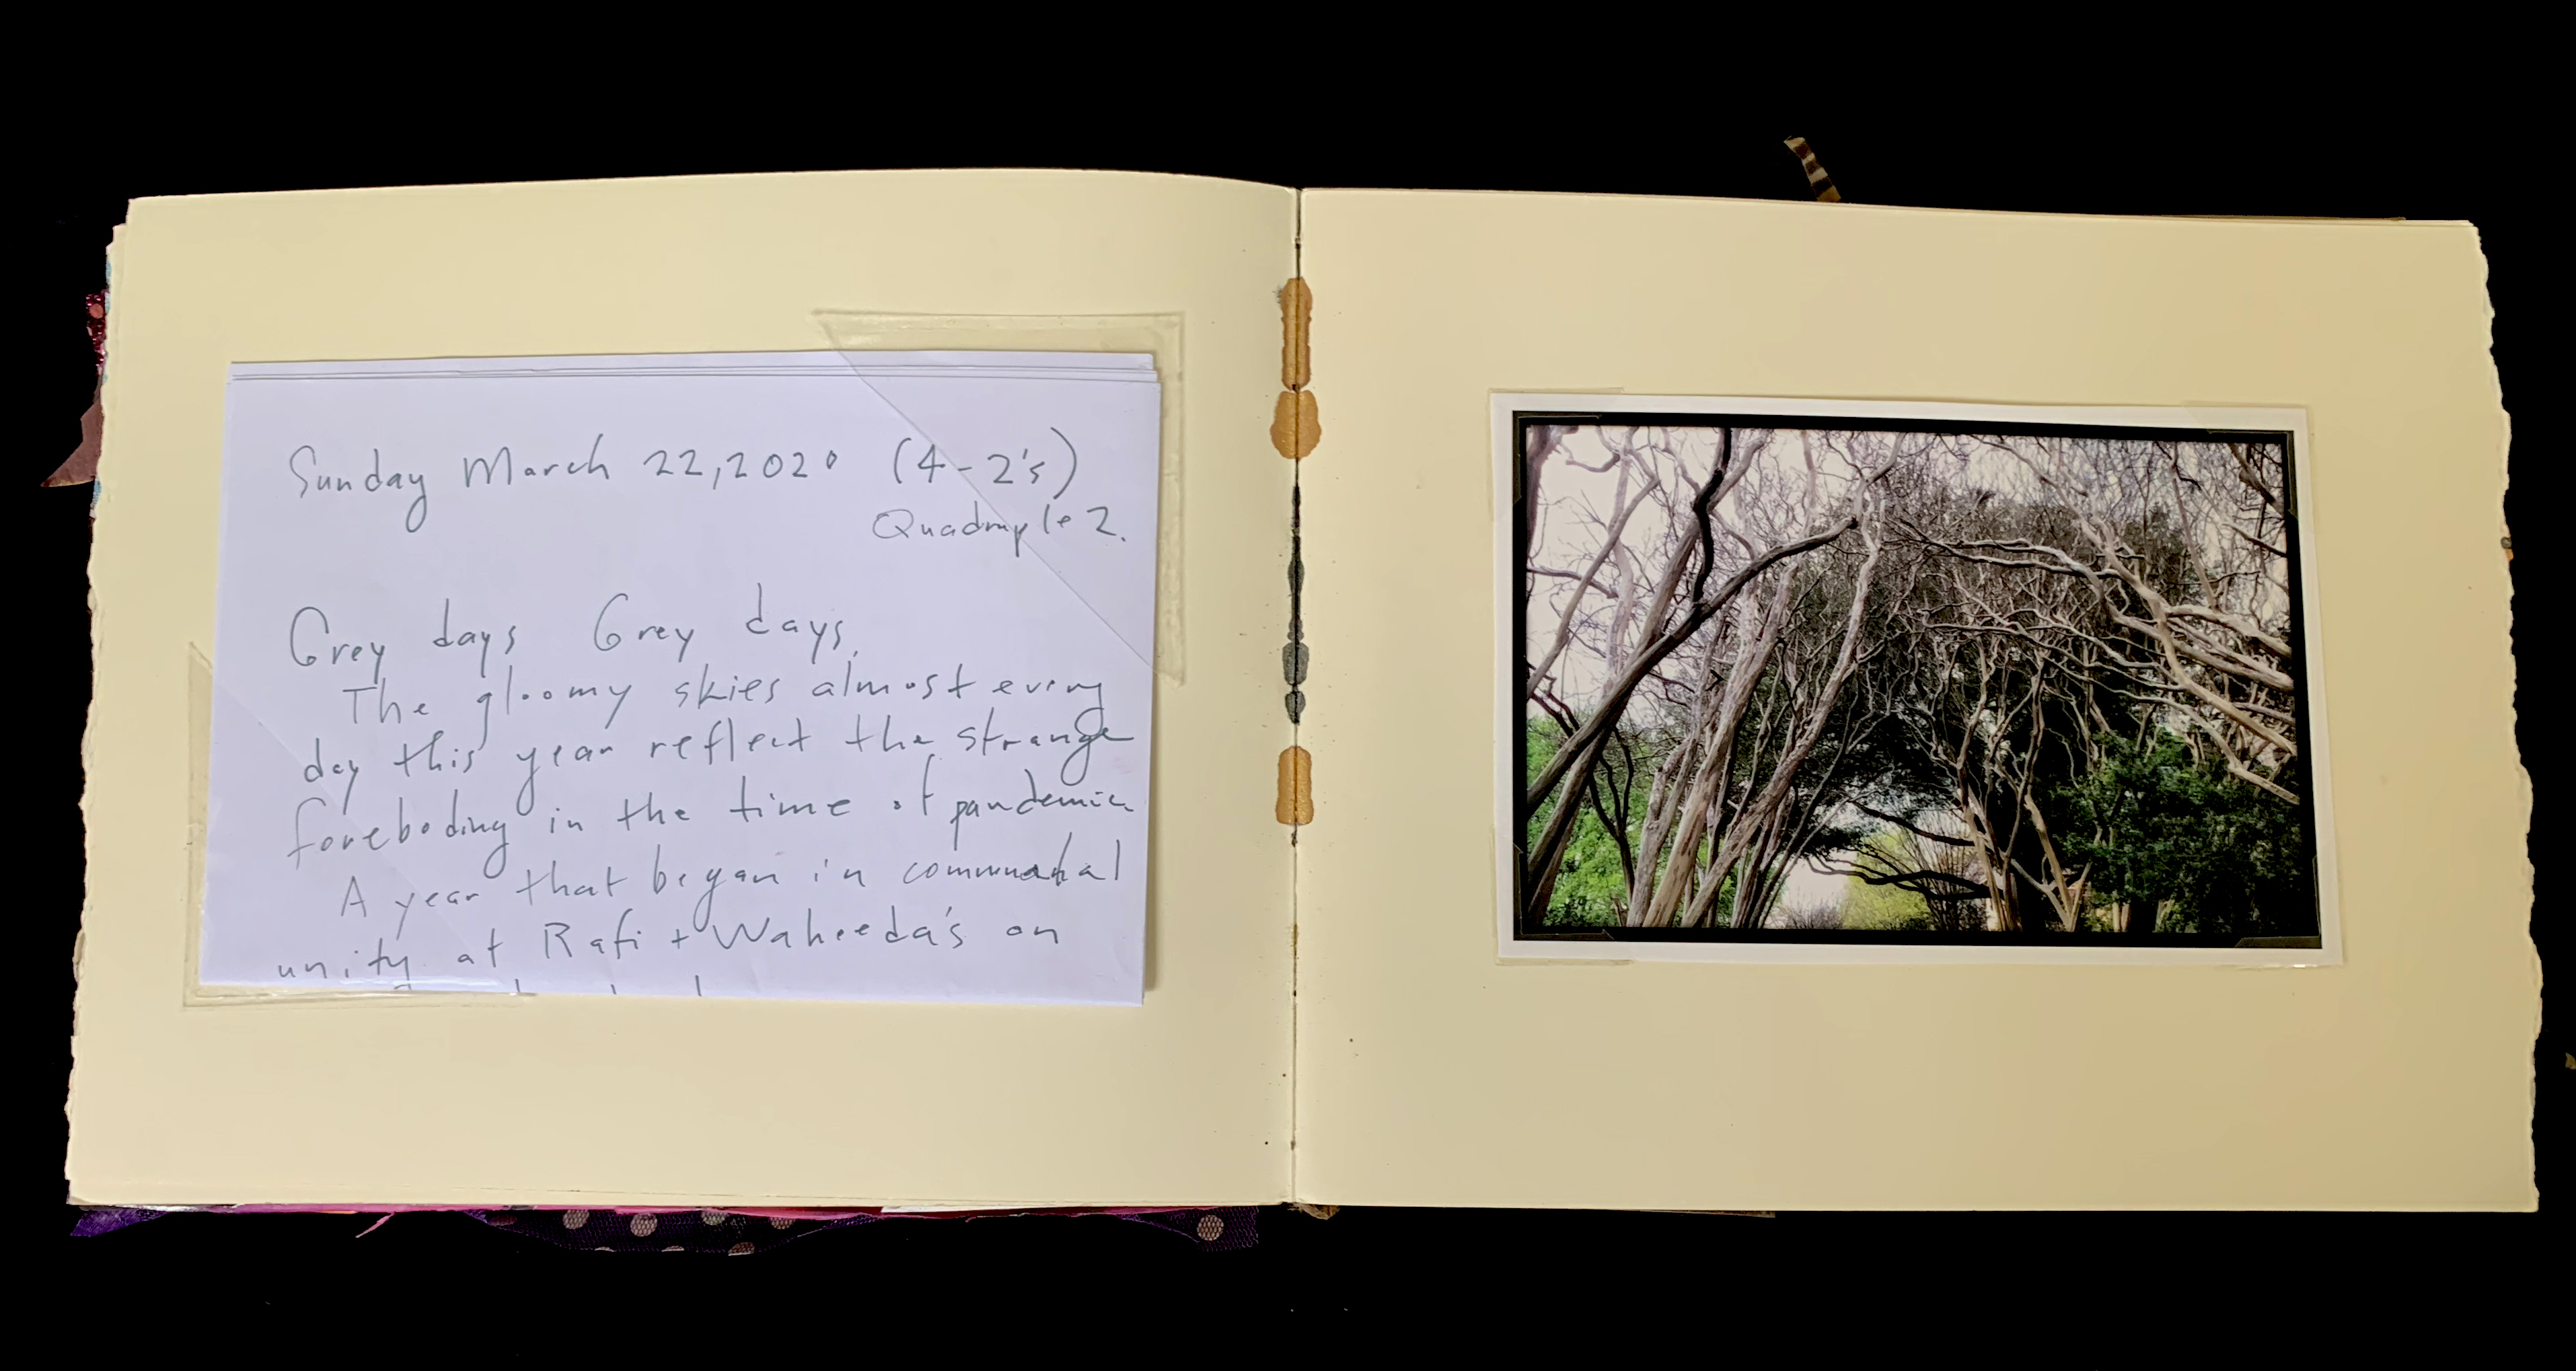 Sunday March 22, 2020 (4-2's)
Quadruple 2.
Grey days Grey days.
The gloomy skies almost every
day this year reflect the strange
foreboding in the time of pandemic
A year that began in communal
unity at Rafi + Waheeda's on